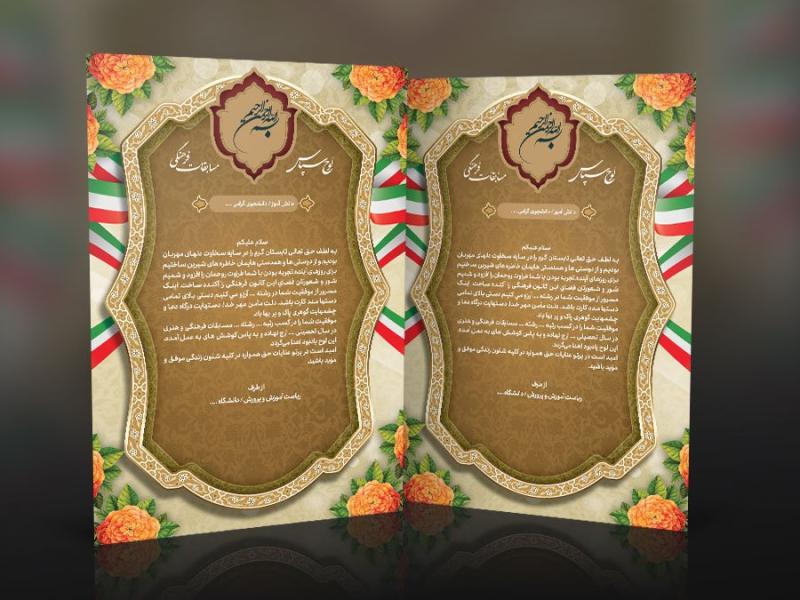 بسم الله الرحمن الرحیم
لوح سپاس
مسابقات فرهنگی
دانش آموز / دانشجوی گرامی ....
سلام علیکم
به لطف حق تعالی تابستان گرم را در سایه سخاوت دلهای مهربان
بودیم و از دوستی ها و همدستی هایمان خاطره های شیرین ساختیم
برای روزهای آینده تجربه بودن با شما طراوت روحمان را افزود و شمیم
شور و شعورتان فضای این کانون فرهنگی را آکنده ساخت اینک
مسرور از موفقیت شما در رشته ... آرزو می کنیم دستی بالای تمامی
دستها مددکارت باشد. دلت مأمن مهر خدا، دستهایت درگاه دعا و
چشمهایت گوهری پاک و پر بها باد.
موفقیت شما را در کسب رتبه ... رشته ... مسابقات فرهنگی و هنری
در سال تحصیلی ... ارج نهاده و به پاس کوشش های به عمل آمده،
این لوح یادبود اهدا می‌گردد.
امید است در پرتو عنایات حق همواره در کلیه شئون زندگی موفق و
موید باشید.
از طرف
ریاست آموزش و پرورش / دانشگاه ....
بسم الله الرحمن الرحیم
لوح سپاس
مسابقات فرهنگی
دانش آموز / دانشجوی گرامی ....
سلام علیکم
به لطف حق تعالی تابستان گرم را در سایه سخاوت دلهای مهربان
بودیم و از دوستی ها و همدستی هایمان خاطره های شیرین ساختیم
برای روزهای آینده تجربه بودن با شما طراوت روحمان را افزود و شمیم
شور و شعورتان فضای این کانون فرهنگی را آکنده ساخت اینک
مسرور از موفقیت شما در رشته ... آرزو می کنیم دستی بالای تمامی
دستها مددکارت باشد. دلت مأمن مهر خدا، دستهایت درگاه دعا و
چشمهایت گوهری پاک و پر بها باد.
موفقیت شما را در کسب رتبه ... رشته ... مسابقات فرهنگی و هنری
در سال تحصیلی ... ارج نهاده و به پاس کوشش های به عمل آمده،
این لوح یادبود اهدا می‌گردد.
امید است در پرتو عنایات حق همواره در کلیه شئون زندگی موفق و
موید باشید.
از طرف
ریاست آموزش و پرورش / دانشگاه ....